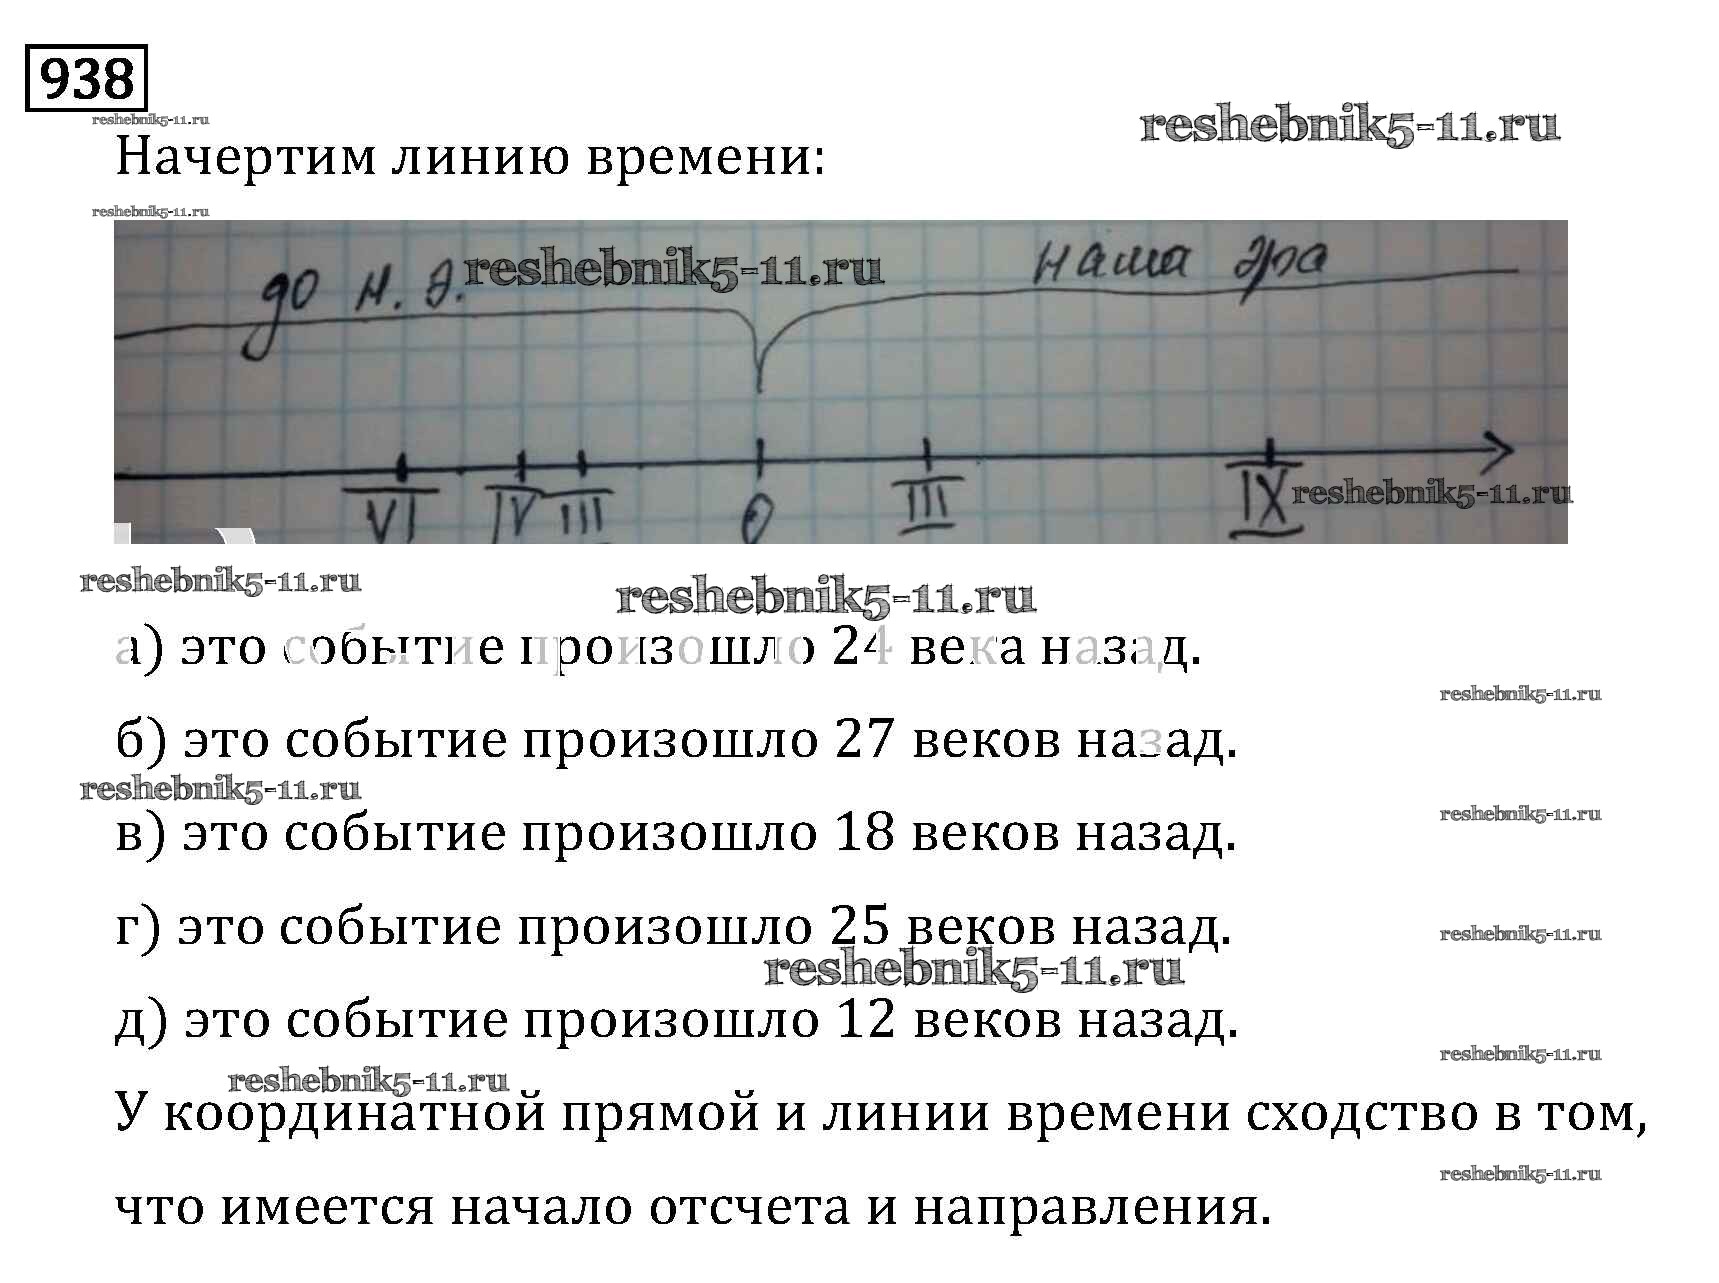 938
reshebnik5-11.ru
reshebnik5-11.ru
Начертим линию времени:
reshebnik5-11.ru
до н. э. reshebnik5-11.ru наша эра
VI IV III 0 III IX reshebnik5-11.ru
reshebnik5-11.ru reshebnik5-11.ru
а) это событие произошло 24 века назад.
reshebnik5-11.ru
б) это событие произошло 27 веков назад.
reshebnik5-11.ru
reshebnik5-11.ru
в) это событие произошло 18 веков назад.
г) это событие произошло 25 веков назад.
reshebnik5-11.ru
reshebnik5-11.ru
д) это событие произошло 12 веков назад.
reshebnik5-11.ru
reshebnik5-11.ru
У координатной прямой и линии времени сходство в том,
reshebnik5-11.ru
что имеется начало отсчета и направления.